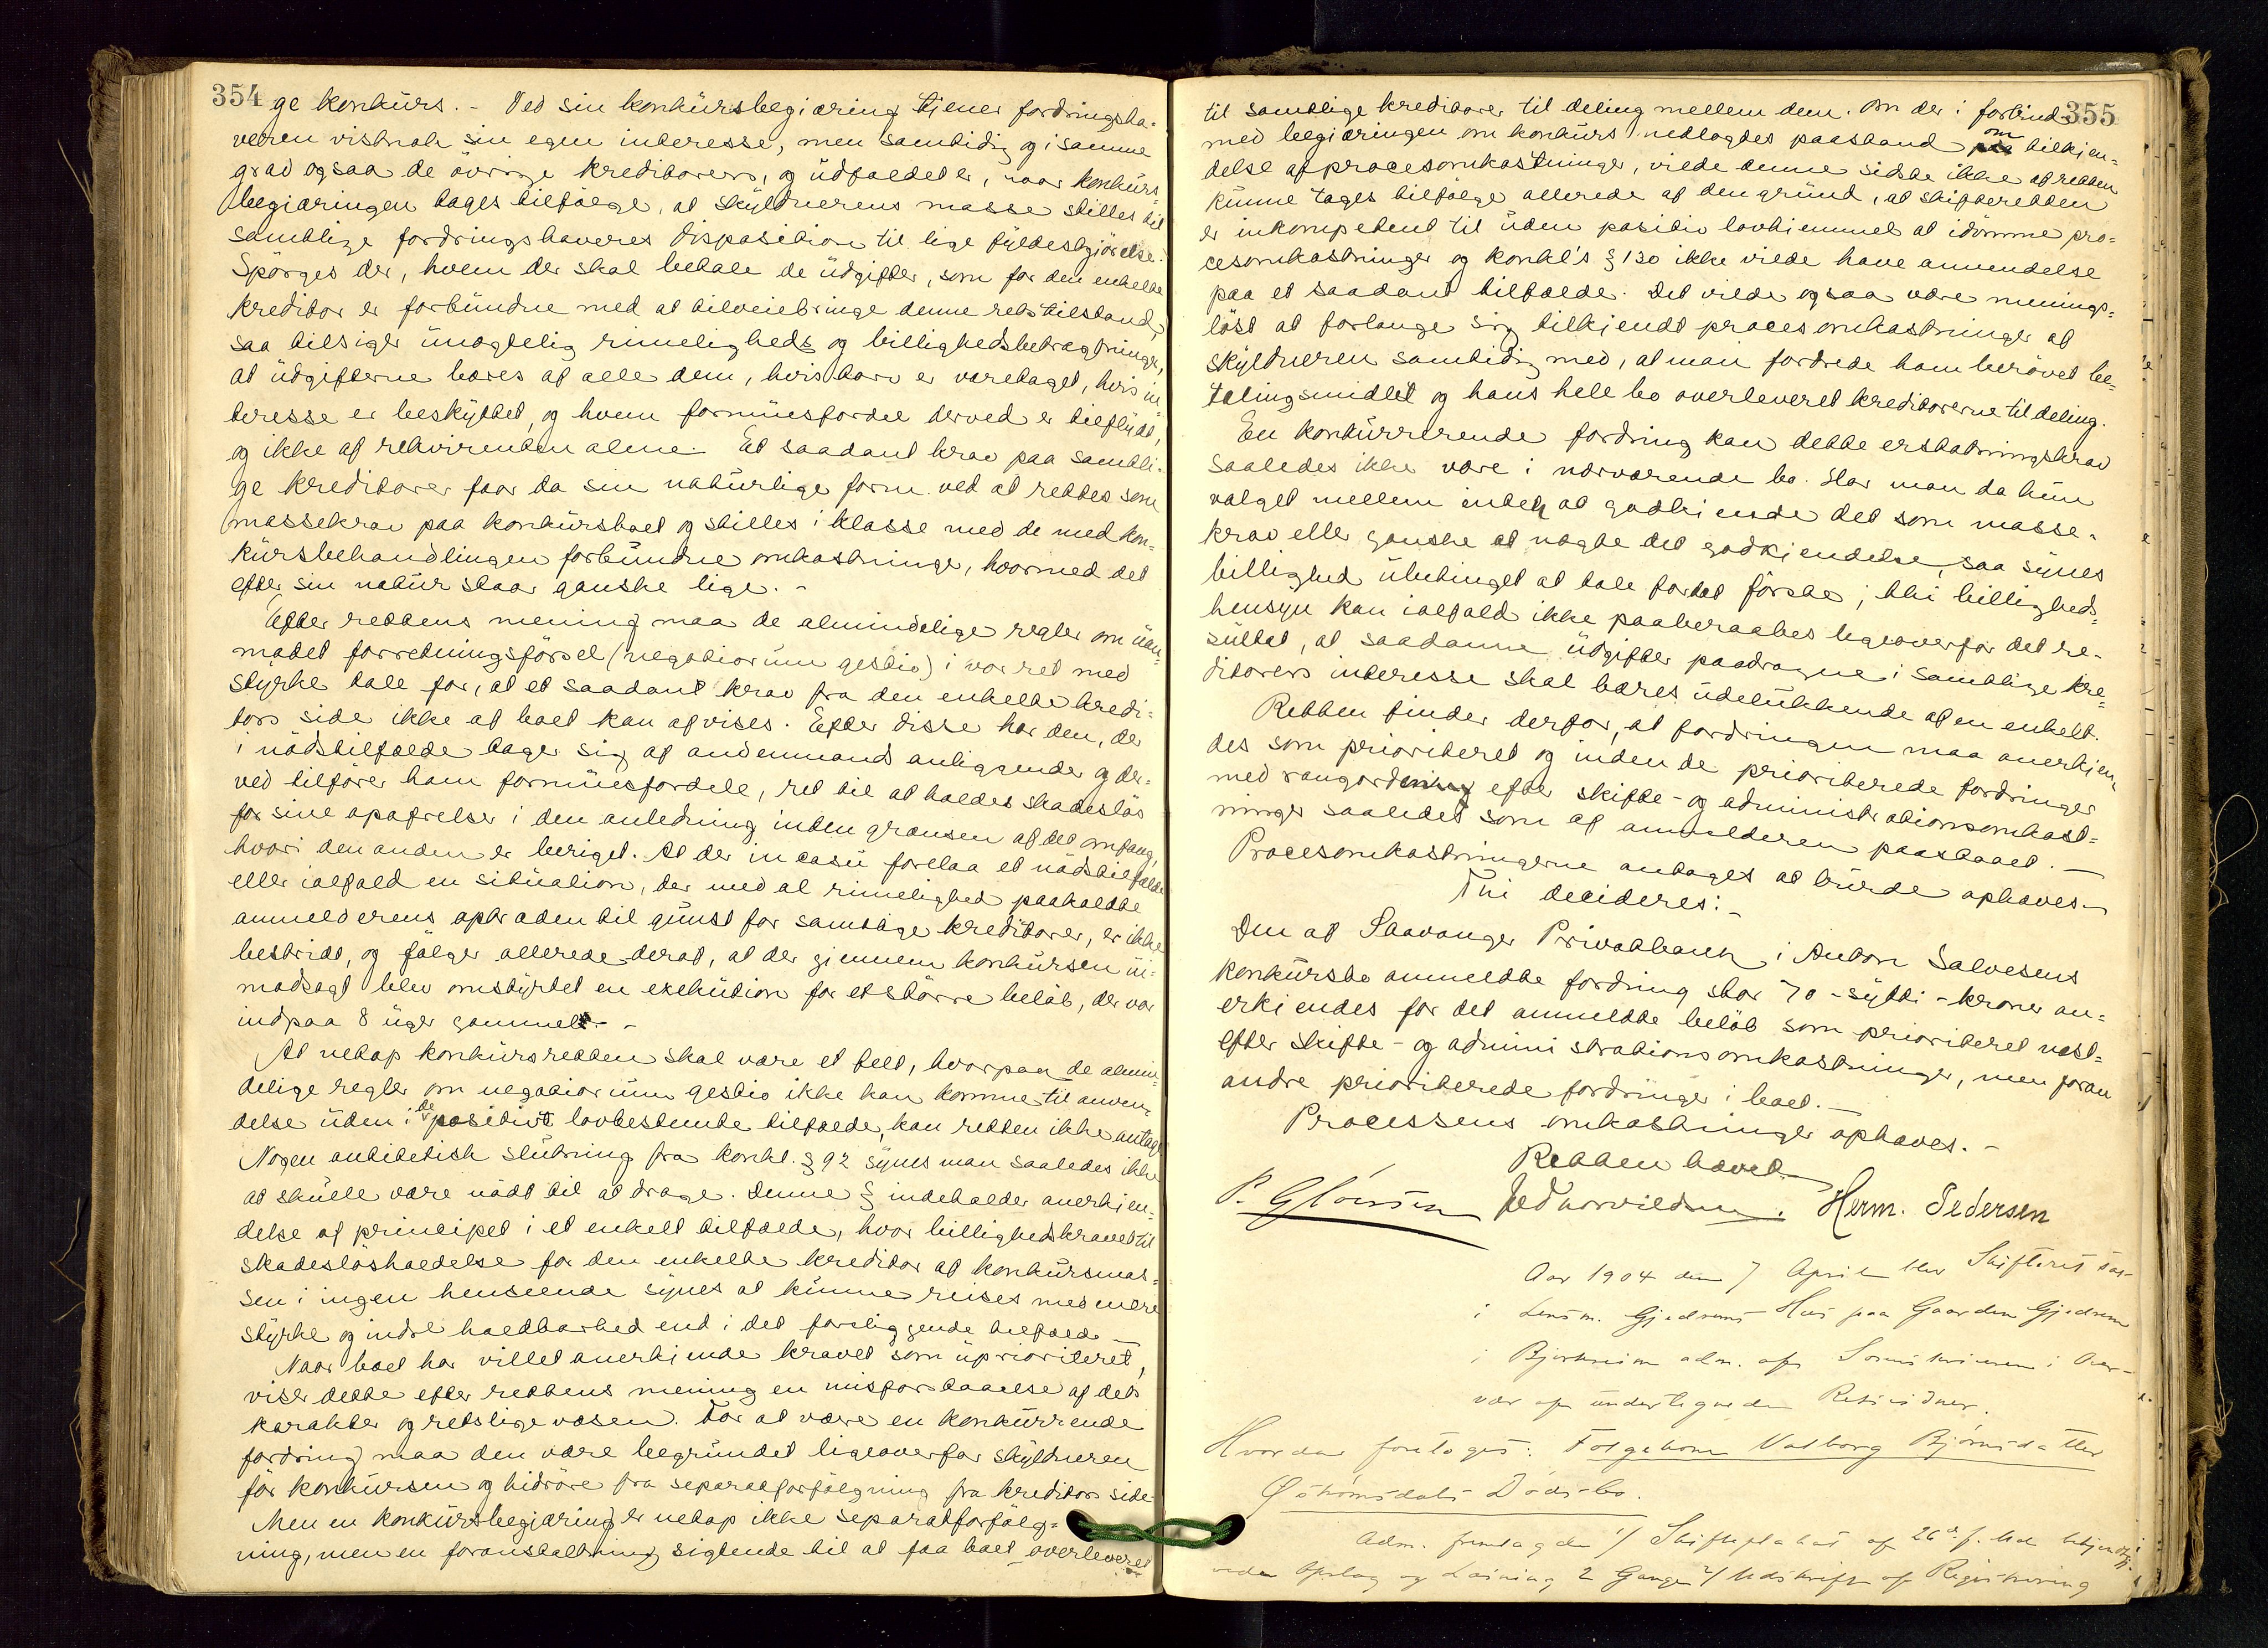 354
ge konkurs. - Ved sin konkursbegiæring tjener fordringsha-
veren vistnok sin egen interesse, men samtidig og i samme
grad ogsaa de øvrige kreditorers, og udfaldet er, naar konkurs-
begiæringen tages tilfølge, at skyldnerens masse stilles til
samtlige fordringshaveres disposition til lige fyldestgiørelse.
Spørges der, hvem der skal betale de udgifter, som for den enkelte
kreditor er forbundne med at tilveiebringe denne retstilstand,
saa tilsiger unægtelig rimeligheds og billighedsbetragtninger,
at udgifterne bæres af alle dem, hvis tarv er varetaget, hvis in
teresse er beskyttet, og hvem formuesfordel derved er tilflydt,
og ikke af rekvirenten alene. Et saadant krav paa samtli-
ge kreditorer faar da sin naturlige form ved at rettes som
massekrav paa konkursboet og stilles i klasse med de med kon-
kursbehandlingen forbundne omkostninger, hvormed det
efter sin natur staar ganske lige. -
Efter rettens mening maa de almindelige regler om uan-
modet forretningsførsel (negotiorum gestio) i vor ret med
styrke tale for, at et saadant krav fra den enkelte kredi-
tors side ikke af boet kan afvises. Efter disse har den, der
i nødstilfælde tager sig af andenmands anliggender og der-
ved tilfører ham formuesfordele, ret til at holdes skadesløs
for sine opofrelser i den anledning inden grænsen af det omfang,
hvori den anden er beriget. At der in casu forelaa et nødstilfælde
eller ialfald en situation, der med al rimelighed paakaldte
anmelderens optræden til gunst for samtlige kreditorer, er ikke
bestridt, og følger allerede deraf, at der giennem konkursen ui-
modsagt blev omstyrtet en exekution for et større beløb, der var
indpaa 8 uger gammel. -
At netop konkursretten skal være et felt, hvorpaa de almin-
delige regler om negotiorum gestio ikke kan komme til anven-
delse uden i de positivt lovbestemte tilfælde, kan retten ikke antage
Nogen antitetisk slutning fra konkl. § 92 synes man saaledes ikke
at skulle være nødt til at drage. Denne § indeholder anerkien-
delse af principet i et enkelt tilfælde, hvor billighedskravet til
skadesløsholdelse for den enkelte kreditor af konkursmas-
sen i ingen henseende synes at kunne reises med mere
styrke og indre holdbarhed end i det foreliggende tilfælde -
Naar boet har villet anerkiende kravet som uprioriteret,
viser dette efter rettens mening en misforstaaelse af dets
karakter og retslige væsen. For at være en konkurrende
fordring maa den være begrundet ligeoverfor skyldneren
før konkursen og hidrøre fra separatforfølgning fra kreditors side
Men en konkursbegjæring er netop ikke separatforfølg-
ning, men en foranstaltning sigtende til at faa boet overleveret
355
til samtlige kreditorer til deling mellem dem. Om der i forbind-
med begiæringen om konkurs nedlagdes paastand om tilkien-
delse af procesomkostninger, vilde denne sidste ikke af retten
kunne tages tilfølge allerede af den grund, at skifteretten
er inkompetent til uden positiv lovhiemmel at idømme pro-
cesomkostninger og konkl's § 130 ikke vilde have anvendelse
paa et saadant tilfælde. Det vilde ogsaa være menings-
løst at forlange sig tilkjendt procesomkostninger af
skyldneren samtidig med, at man fordrede ham berøvet be-
talingsmidlet og hans hele bo overleveret kreditorerne til deling.
En konkurrerende fordring kan dette erstatningskrav
saaledes ikke være i nærværende bo. Har man da kun
valget mellem enten at godkiende det som masse-
krav eller ganske at nægte det godkiendelse, saa synes
billighed ubetinget at tale for det første; thi billigheds-
hensyn kan ialfald ikke paaberaabes ligeoverfor det re-
sultat, at saadanne udgifter paadragne i samtlige kre-
ditorers interesse skal bæres udelukkende af en enkelt.
Retten finder derfor, at fordringen maa anerkien-
des som prioriteret og inden de prioriterede fordringer
med rangordning efter skifte- og administrationsomkost-
ninger saaledes som af anmelderen paastaaet. -
Procesomkostningerne antages at burde ophæves -
Thi decideres: -
Den af Stavanger Privatbank i Anton Salvesens
konkursbo anmeldte fordring stor 70 - sytti - kroner an-
erkiendes for det anmeldte beløb som prioriteret næst-
efter skifte- og administrationsomkostninger, men foran
andre prioriterede fordringer i boet. -
Processens omkostninger ophæves. -
Retten hævet
Herm. Pedersen
Aar 1904 den 7 April blev Skifteret sat
i Lensm. Gjedrems Hus paa Gaarden Gjedrem
i Bjerkreim adm. af Sorenskriveren i
vær af undertegnede Retsvidner.
Hvorda foretoges: Folgekone Valborg Bjørnsdatter
Dødsbo.
Adm. fremlagde 1/ Skifteplakat af 26de f. Md bekjendtgj.
ved Opslag og Læsning 2 Gange 2/ Udskrift af Registrering